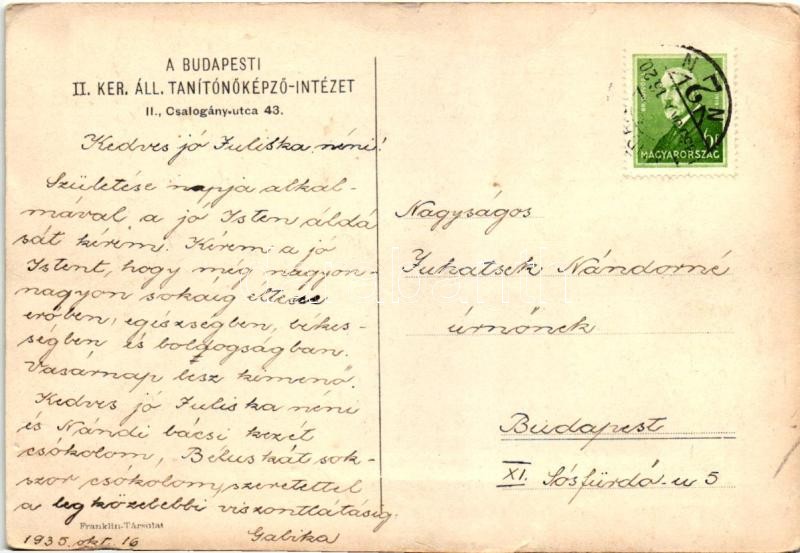 A BUDAPESTI
II. KER. ÁLL. TANÍTÓNŐKÉPZŐ-INTÉZET
II., Csalogány-utca 43.
Kedves jó Juliska néni!
Születése napja alkal-
mával a jó Isten áldá
sát kérem. Kérem a jó
Istent, hogy még nagyon-
nagyon sokáig éltesse
erőben, egészségben, békes-
ségben és boldogságban.
Vasárnap lesz kimenő.
Kedves jó Juliska néni
és Nándi bácsi kezét
csókolom, Béluskát sok-
szor csókolom, szeretettel
a legközelebbi viszontlátásig.
Gabika
Franklin-Társulat
1935. okt. 16
MAGYARORSZÁG
Nagyságos
Jukatsek Nándorné
úrnőnek
Budapest
XI. Sósfürdő-u 5